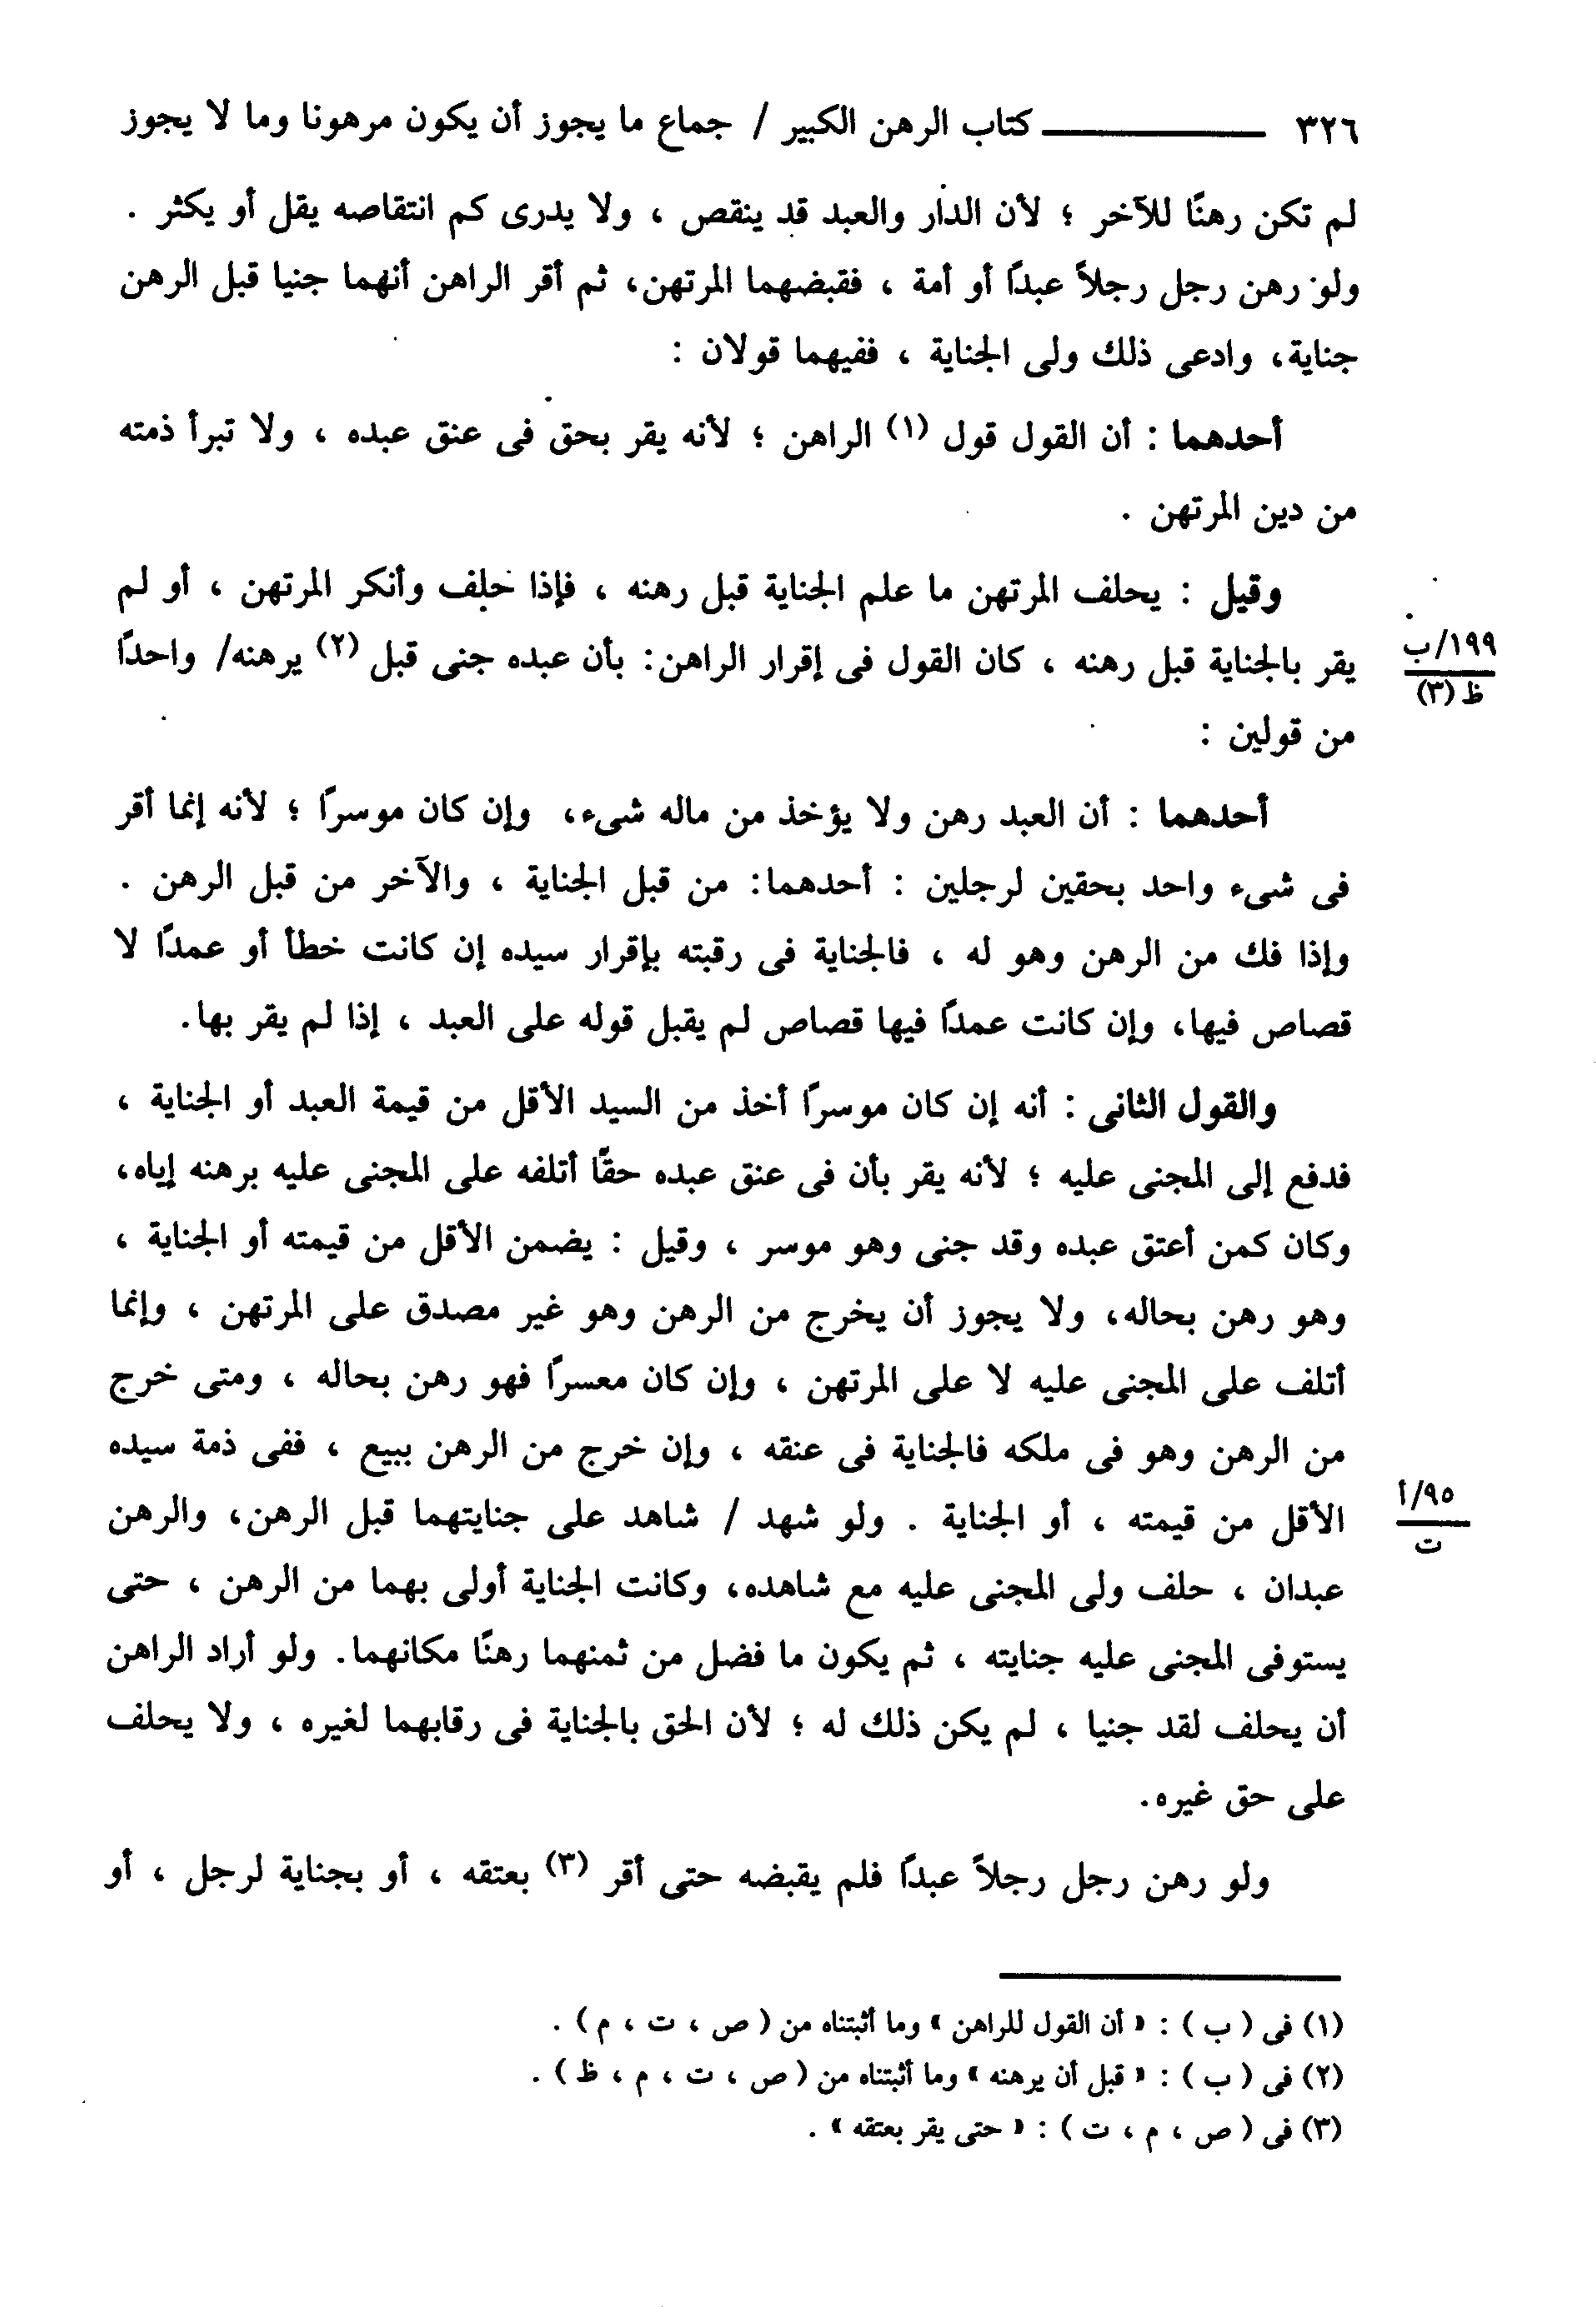 ٣٢٦ ــــــــــــــ كتاب الرهن الكبير / جماع ما يجوز أن يكون مرهونا وما لا يجوز
لم تكن رهنًا للآخر ؛ لأن الدار والعبد قد ينقص ، ولا يدرى كم انتقاصه يقل أو يكثر .
ولو رهن رجل رجلاً عبدًا أو أمة ، فقبضهما المرتهن، ثم أقر الراهن أنهما جنيا قبل الرهن
جناية، وادعى ذلك ولى الجناية ، ففيهما قولان :
أحدهما : أن القول قول (١) الراهن ؛ لأنه يقر بحق فى عنق عبده ، ولا تبرأ ذمته
من دين المرتهن .
وقيل : يحلف المرتهن ما علم الجناية قبل رهنه ، فإذا حلف وأنكر المرتهن ، أو لم
يقر بالجناية قبل رهنه ، كان القول فى إقرار الراهن: بأن عبده جنى قبل (٢) يرهنه/ واحدًا
١٩٩/ب
ظ (٣)
من قولين :
أحدهما : أن العبد رهن ولا يؤخذ من ماله شىء، وإن كان موسرًا ؛ لأنه إنما أقر
فى شىء واحد بحقين لرجلين : أحدهما: من قبل الجناية ، والآخر من قبل الرهن .
وإذا فك من الرهن وهو له ، فالجناية فى رقبته بإقرار سيده إن كانت خطأ أو عمدًا لا
قصاص فيها، وإن كانت عمدًا فيها قصاص لم يقبل قوله على العبد ، إذا لم يقر بها.
والقول الثانى : أنه إن كان موسرًا أخذ من السيد الأقل من قيمة العبد أو الجناية ،
فدفع إلى المجنى عليه ؛ لأنه يقر بأن فى عنق عبده حقًا أتلفه على المجنى عليه برهنه إياه،
وكان كمن أعتق عبده وقد جنى وهو موسر ، وقيل : يضمن الأقل من قيمته أو الجناية ،
وهو رهن بحاله، ولا يجوز أن يخرج من الرهن وهو غير مصدق على المرتهن ، وإنما
أتلف على المجنى عليه لا على المرتهن ، وإن كان معسرًا فهو رهن بحاله ، ومتى خرج
من الرهن وهو فى ملكه فالجناية فى عنقه ، وإن خرج من الرهن ببيع ، ففى ذمة سيده
الأقل من قيمته ، أو الجناية . ولو شهد / شاهد على جنايتهما قبل الرهن، والرهن
٩٥/أ
ت
عبدان ، حلف ولى المجنى عليه مع شاهده، وكانت الجناية أولى بهما من الرهن ، حتى
يستوفى المجنى عليه جنايته ، ثم يكون ما فضل من ثمنهما رهنًا مكانهما. ولو أراد الراهن
أن يحلف لقد جنيا ، لم يكن ذلك له ؛ لأن الحق بالجناية فى رقابهما لغيره ، ولا يحلف
على حق غيره.
ولو رهن رجل رجلاً عبدًا فلم يقبضه حتى أقر (٣) بعتقه ، أو بجناية لرجل ، أو
(١) فى ( ب ) : « أن القول للراهن » وما أثبتناه من ( ص ، ت ، م ) .
(٢) فى ( ب ) : « قبل أن يرهنه » وما أثبتناه من ( ص ، ت ، م ، ظ ) .
(٣) فى ( ص ، م ، ت ) : « حتى يقر بعتقه » .